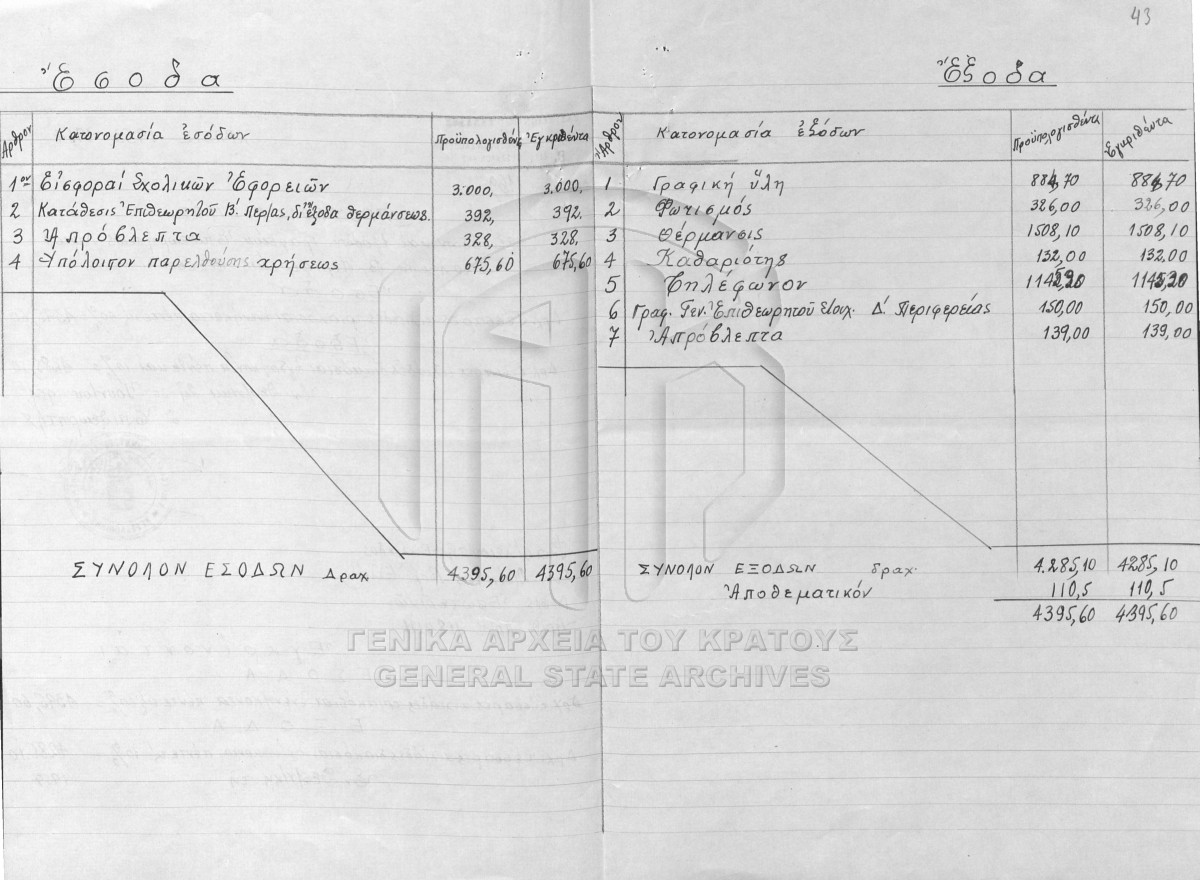 43
Ἔσοδα
Ἄρθρον Κατονομασία ἐσόδων Προϋπολογισθέντα Ἐγκριθέντα
1ον Εἰσφοραί Σχολικῶν Ἐφορειῶν 3.000, 3.000,
2 Κατάθεσις Ἐπιθεωρητοῦ Β΄. Περ/ας, δι' ἔξοδα θερμάνσεως. 392, 392.
3 Ἀπρόβλεπτα 328, 328,
4 Ὑπόλοιπον παρελθούσης χρήσεως 675,60 675,60
ΣΥΝΟΛΟΝ ΕΣΟΔΩΝ Δραχ. 4395,60 4395,60
Ἔξοδα
Ἄρθρον Κατονομασία ἐξόδων Προϋπολογισθέντα Ἐγκριθέντα
1 Γραφική ὕλη 884,70 884,70
2 Φωτισμός 326,00 326,00
3 Θέρμανσις 1508,10 1508,10
4 Καθαριότης 132,00 132,00
5 Τηλέφωνον
6 Γραφ. Γεν. Ἐπιθεωρητοῦ Στοιχ. Δ΄. Περιφερείας 150,00 150,00
7 Ἀπρόβλεπτα 139,00 139,00
ΣΥΝΟΛΟΝ ΕΞΟΔΩΝ δραχ. 4.285,10 4285,10
Ἀποθεματικόν 110,5 110,5
4395,60 4395,60
ΓΕΝΙΚΑ ΑΡΧΕΙΑ ΤΟΥ ΚΡΑΤΟΥΣ
GENERAL STATE ARCHIVES